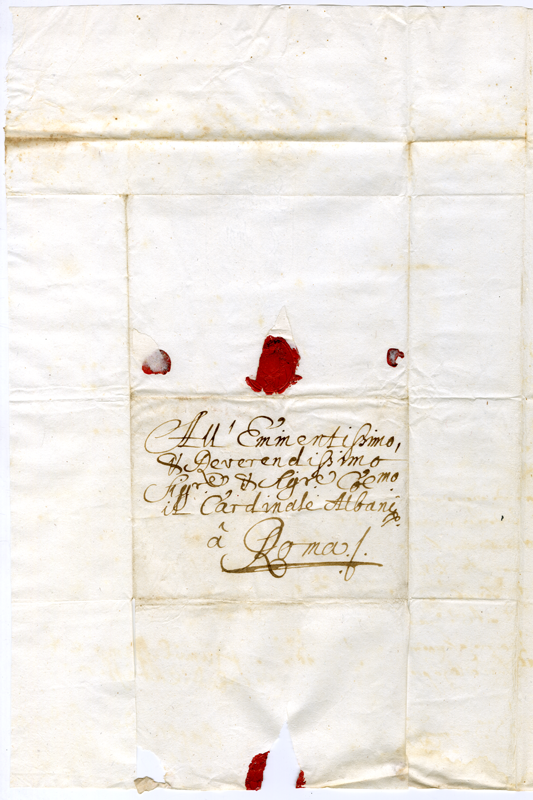 All' Eminentissimo,
& Reverendissimo
Sigre & Sigre Colmo
il Cardinale Albani
â Roma./.